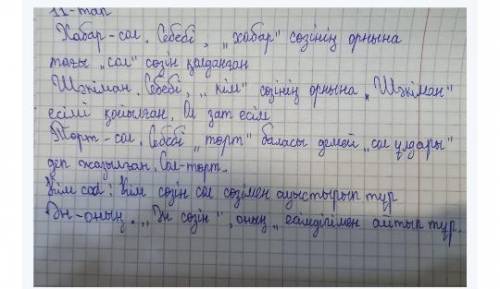 11-тап
Хабар-сол. Себебі, „хабар" сөзінің орнына
тағы „сол" сөзін қолданған
Шәкіман. Себебі, „кім" сөзінің орнына „Шәкіман"
есімі қойылған. Ол зат есім
Төрт-сол. Себебі „төрт" баласы демей „сол ұлдары"
деп жазылған. Сол-төрт.
Кім сол: Кім сөзін сол сөзімен ауыстырып тұр
Ән-оның. „Ән сөзін", оның „есімдігімен айтып тұр.